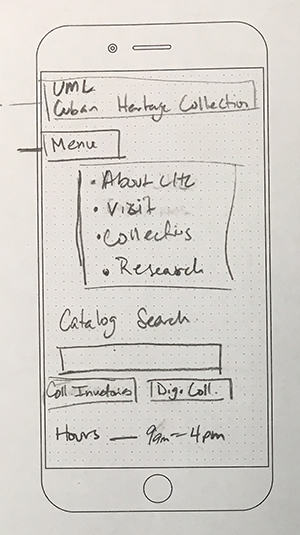 UML
Cuban Heritage Collection
Menu
• About CHC
• Visit
• Collections
• Research
Catalog Search
Coll Inventories Dig. Coll.
Hours — 9am – 4pm